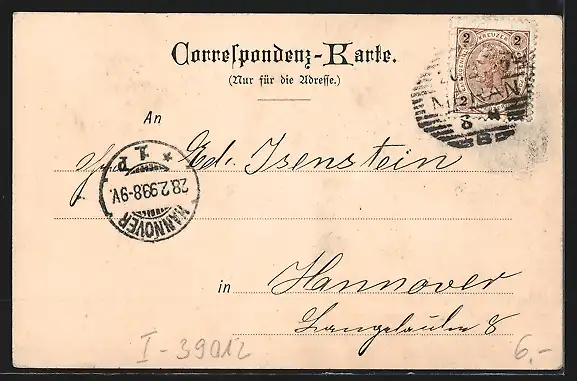 Correspondenz-Karte.
(Nur für die Adresse.)
2 KREUZER 2
2
MERAN
8
B
An
Ed. Isenstein
1 P
28.2.99.8-9V.
HANNOVER
in Hannover
Langelaube 8
I-39012
6.-